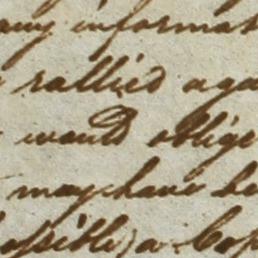 any informat
rallied aga
would oblige
may have be
ossible) a Cop